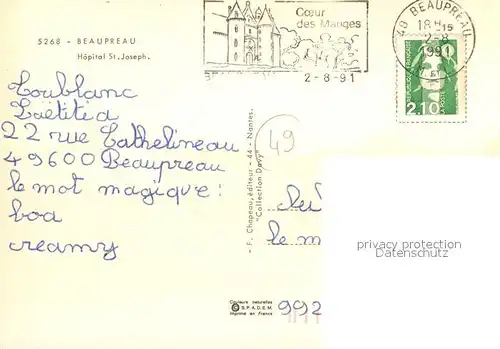 5268 - BEAUPREAU
Hôpital St. Joseph.
Cœur
des Mauges
2-8-91
49 BEAUPREAU
18H15
2-8
1991
RÉPUBLIQUE FRANÇAISE
LA POSTE
2,10
Toublanc
Laëtitia
22 rue Cathelineau
49600 Beaupreau
le mot magique :
boa
creamy
49
- F. Chapeau, éditeur - 44 - Nantes.
"Collection Davy"
le m
privacy protection
Datenschutz
Couleurs naturelles
© S.P.A.D.E.M.
Imprimé en France
992